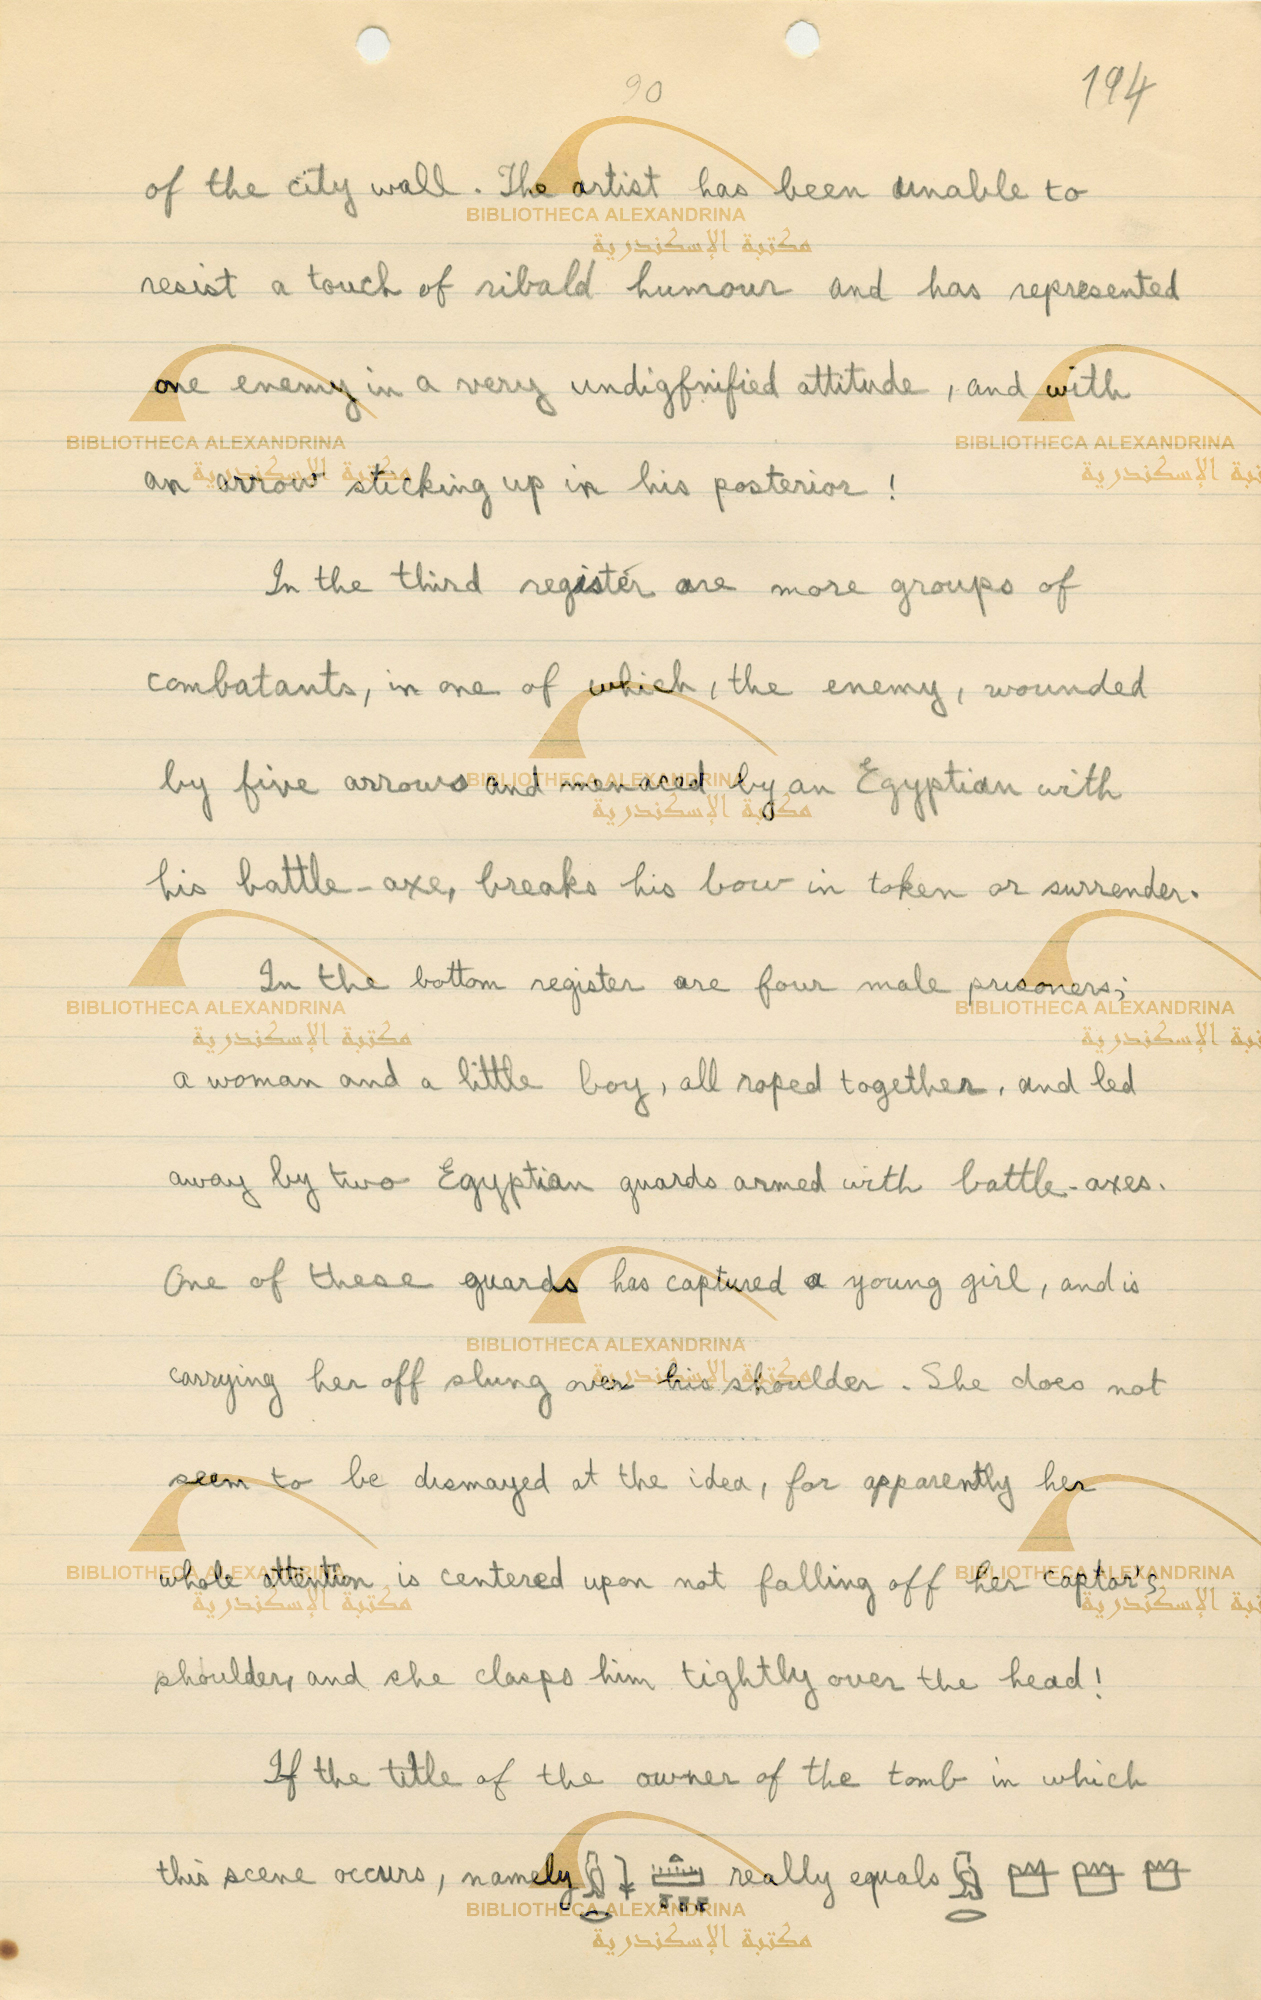 90
194
of the city wall. The artist has been unable to
resist a touch of ribald humour and has represented
one enemy in a very undigfnified attitude, and with
an arrow sticking up in his posterior!
In the third register are more groups of
combatants, in one of which, the enemy, wounded
by five arrows and menaced by an Egyptian with
his battle-axe, breaks his bow in token or surrender.
In the bottom register are four male prisoners;
a woman and a little boy, all roped together, and led
away by two Egyptian guards armed with battle-axes.
One of these guards has captured a young girl, and is
carrying her off slung over his shoulder. She does not
seem to be dismayed at the idea, for apparently her
whole attention is centered upon not falling off her captor's
shoulder, and she clasps him tightly over the head!
If the title of the owner of the tomb in which
this scene occurs, namely really equals
BIBLIOTHECA ALEXANDRINA
مكتبة الإسكندرية
BIBLIOTHECA ALEXANDRINA
مكتبة الإسكندرية
BIBLIOTHECA ALEXANDRINA
مكتبة الإسكندرية
BIBLIOTHECA ALEXANDRINA
مكتبة الإسكندرية
BIBLIOTHECA ALEXANDRINA
مكتبة الإسكندرية
BIBLIOTHECA ALEXANDRINA
مكتبة الإسكندرية
BIBLIOTHECA ALEXANDRINA
مكتبة الإسكندرية
BIBLIOTHECA ALEXANDRINA
مكتبة الإسكندرية
BIBLIOTHECA ALEXANDRINA
مكتبة الإسكندرية
BIBLIOTHECA ALEXANDRINA
مكتبة الإسكندرية